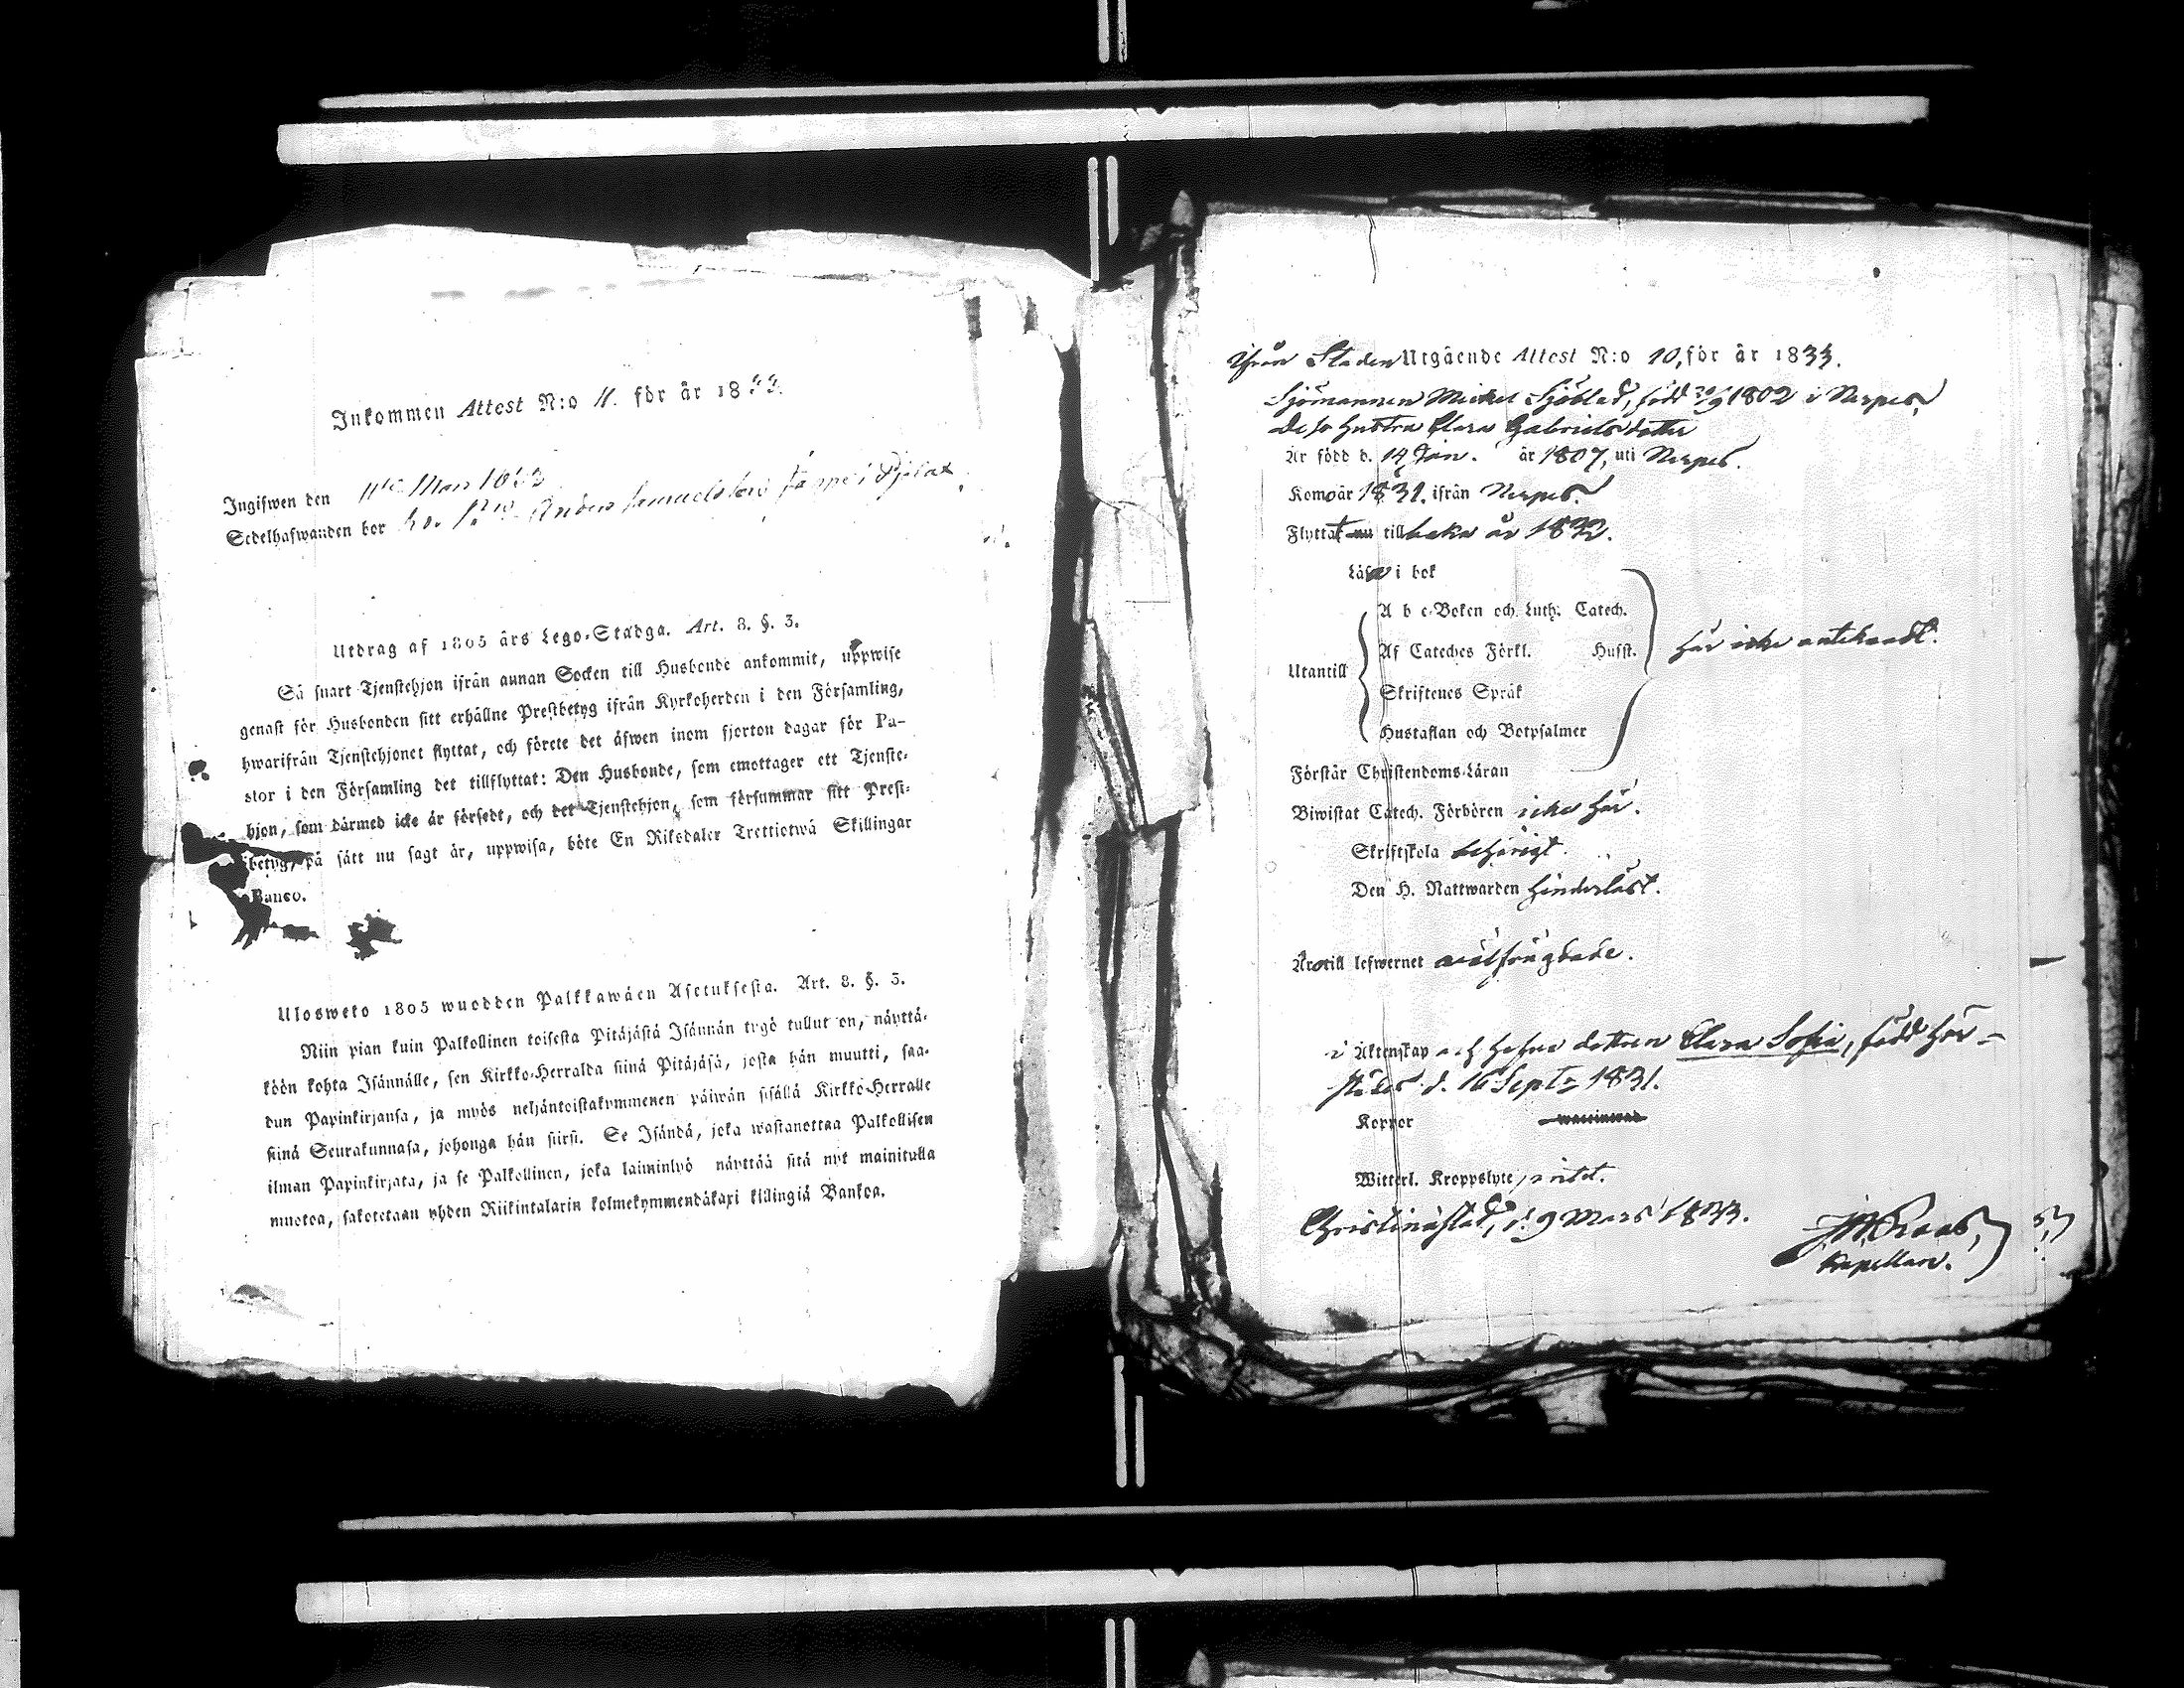 Inkommen Attest N:o 11. för år 1833.
Ingifwen den 11te Mars 1833
Sedelhafwanden bor hos Anders Samuelsson i Pjelax.
Utdrag af 1805 års Lego-Stadga. Art. 8. §. 3.
Så snart Tjenstehjon ifrån annan Socken till Husbonde ankommit, uppwise
genast för Husbonden sitt erhållne Prestbetyg ifrån Kyrkoherden i den Församling,
hwarifrån Tjenstehjonet flyttat, och förete det äfwen inom fjorton dagar för Pa-
stor i den Församling det tillflyttat: Den Husbonde, som emottager ett Tjenste-
hjon, som dermed icke är försedt, och det Tjenstehjon, som försummar sitt Prest-
betyg, på sätt nu sagt är, uppwisa, böte En Riksdaler Trettiotwå Skillingar
Banco.
Ulosweto 1805 wuodden Palkkawäen Asetuksesta. Art. 8. §. 3.
Niin pian kuin Palkollinen toisesta Pitäjästä Isännän tygö tullut on, näyttä-
köön kohta Isännälle, sen Kirkko-Herralda siinä Pitäjäsä, josta hän muutti, saa-
dun Papinkirjansa, ja myös neljäntoistakymmenen päiwän sisällä Kirkko-Herralle
siinä Seurakunnasa, johonga hän siirsi. Se Isändä, joka wastanottaa Palkollisen
ilman Papinkirjata, ja se Palkollinen, joka laiminlyö näyttää sitä nyt mainitulla
muotoa, sakotetaan yhden Riikintalarin kolmekymmendäkaxi killingiä Bankoa.
Ifrån Staden Utgående Attest N:o 10, för år 1833.
Sjömannen Mickel Sjöblad, född 20/9 1802 i Nerpes,
dess hustru Clara Gabrielsdotter
Är född d. 14 Jan. år 1807, uti Nerpes.
Kom år 1831. ifrån Nerpes.
Flyttat nu tillbaka år 1832.
Läsa i bok
A b c-Boken och Luth. Catech.
Utantill Af Cateches Förkl. Husst. här icke antecknadt.
Skriftenes Språk
Hustaflan och Botpsalmer
Förstår Christendoms-Läran
Biwistat Catech. Förhören icke här.
Skriftskola behörigt.
Den H. Nattwarden hinderlöst.
Äro till lefwernet wälfrägdade.
i Äktenskap och hafva dottren Clara Sofia, född här-
städes d. 16 Sept. 1831.
Koppor waccinerad
Witterl. Kroppslyte, intet.
Christinæstad, d. 9 Mars 1833.
Kapellan.